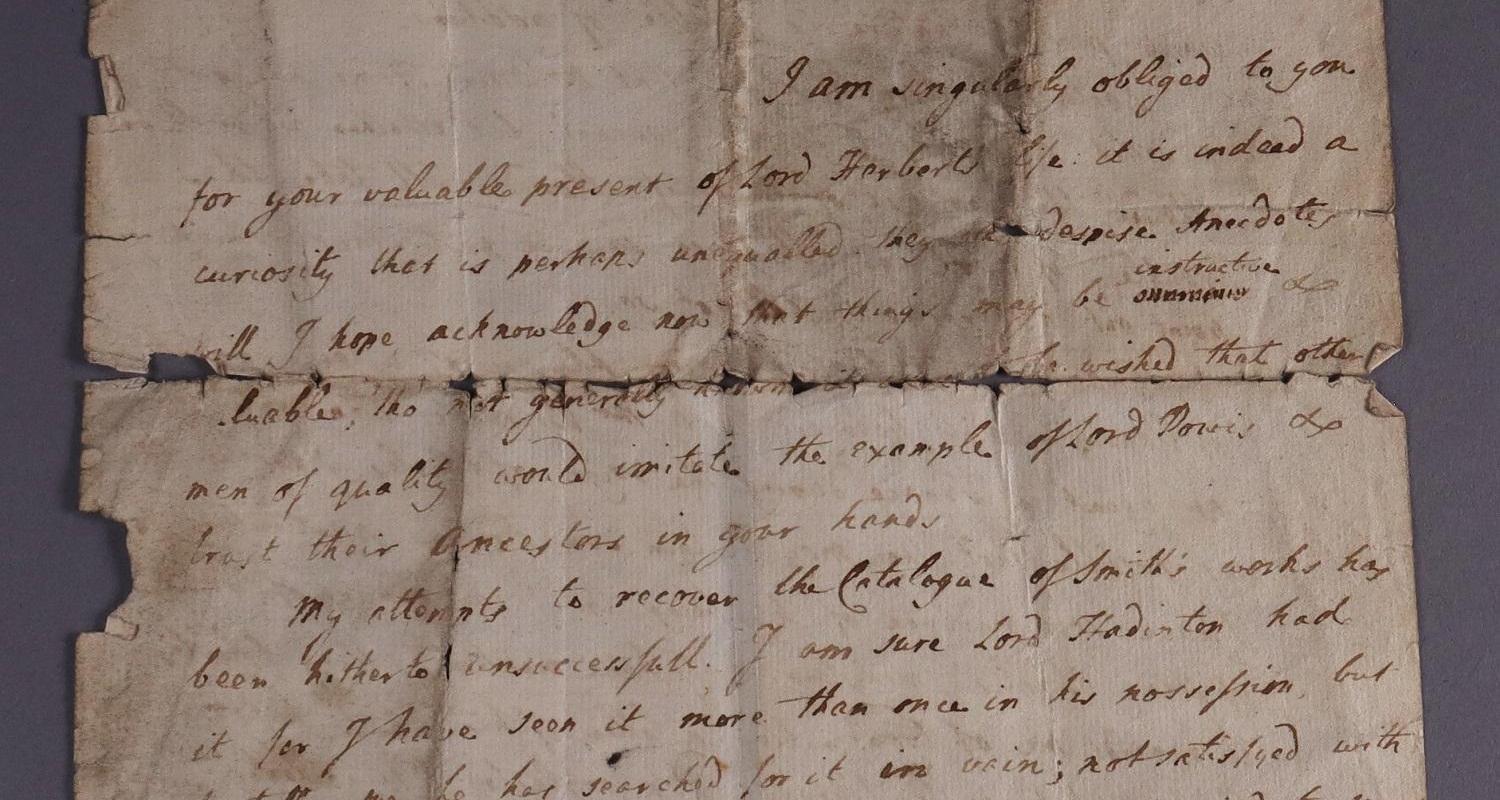 I am singularly obliged to you
for your valuable present of Lord Herberts life. it is indeed a
curiosity that is perhaps unequalled they despise Anecdotes
will I hope acknowledge now that things may be instructive &
luable, tho not generally known it wished that other
men of quality would imitate the example of Lord Powis &
trust their Ancestors in your hands
My attempts to recover the Catalogue of Smith's works has
been hitherto unsuccessfull. I am sure Lord Hadinton had
it for I have seen it more than once in his possession, but
he has searched for it in vain; not satisfyed with